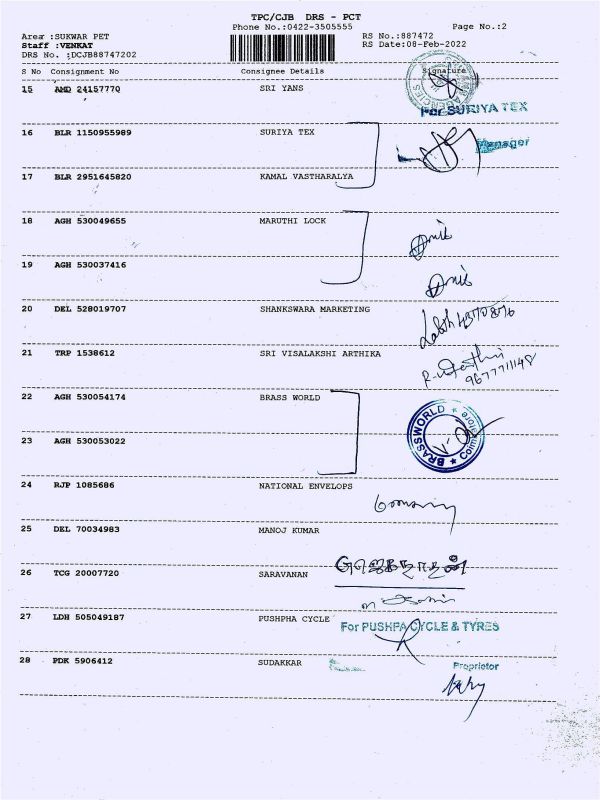 TPC/CJB DRS - PCT
Phone No.:0422-3505555 Page No.:2
Area :SUKWAR PET RS No.:887472
Staff :VENKAT RS Date:08-Feb-2022
DRS No. :DCJB88747202
S No Consignment No Consignee Details Signature
15 AMD 24157770 SRI YANS
For SURIYA TEX
16 BLR 1150955989 SURIYA TEX
Manager
17 BLR 2951645820 KAMAL VASTHARALYA
18 AGH 530049655 MARUTHI LOCK
19 AGH 530037416
20 DEL 528019707 SHANKSWARA MARKETING
21 TRP 1538612 SRI VISALAKSHI ARTHIKA
9677711148
22 AGH 530054174 BRASS WORLD
BRASSWORLD
23 AGH 530053022
24 RJP 1085686 NATIONAL ENVELOPS
25 DEL 70034983 MANOJ KUMAR
26 TCG 20007720 SARAVANAN
27 LDH 505049187 PUSHPHA CYCLE
For PUSHPA CYCLE & TYRES
28 PDK 5906412 SUDAKKAR
Proprietor